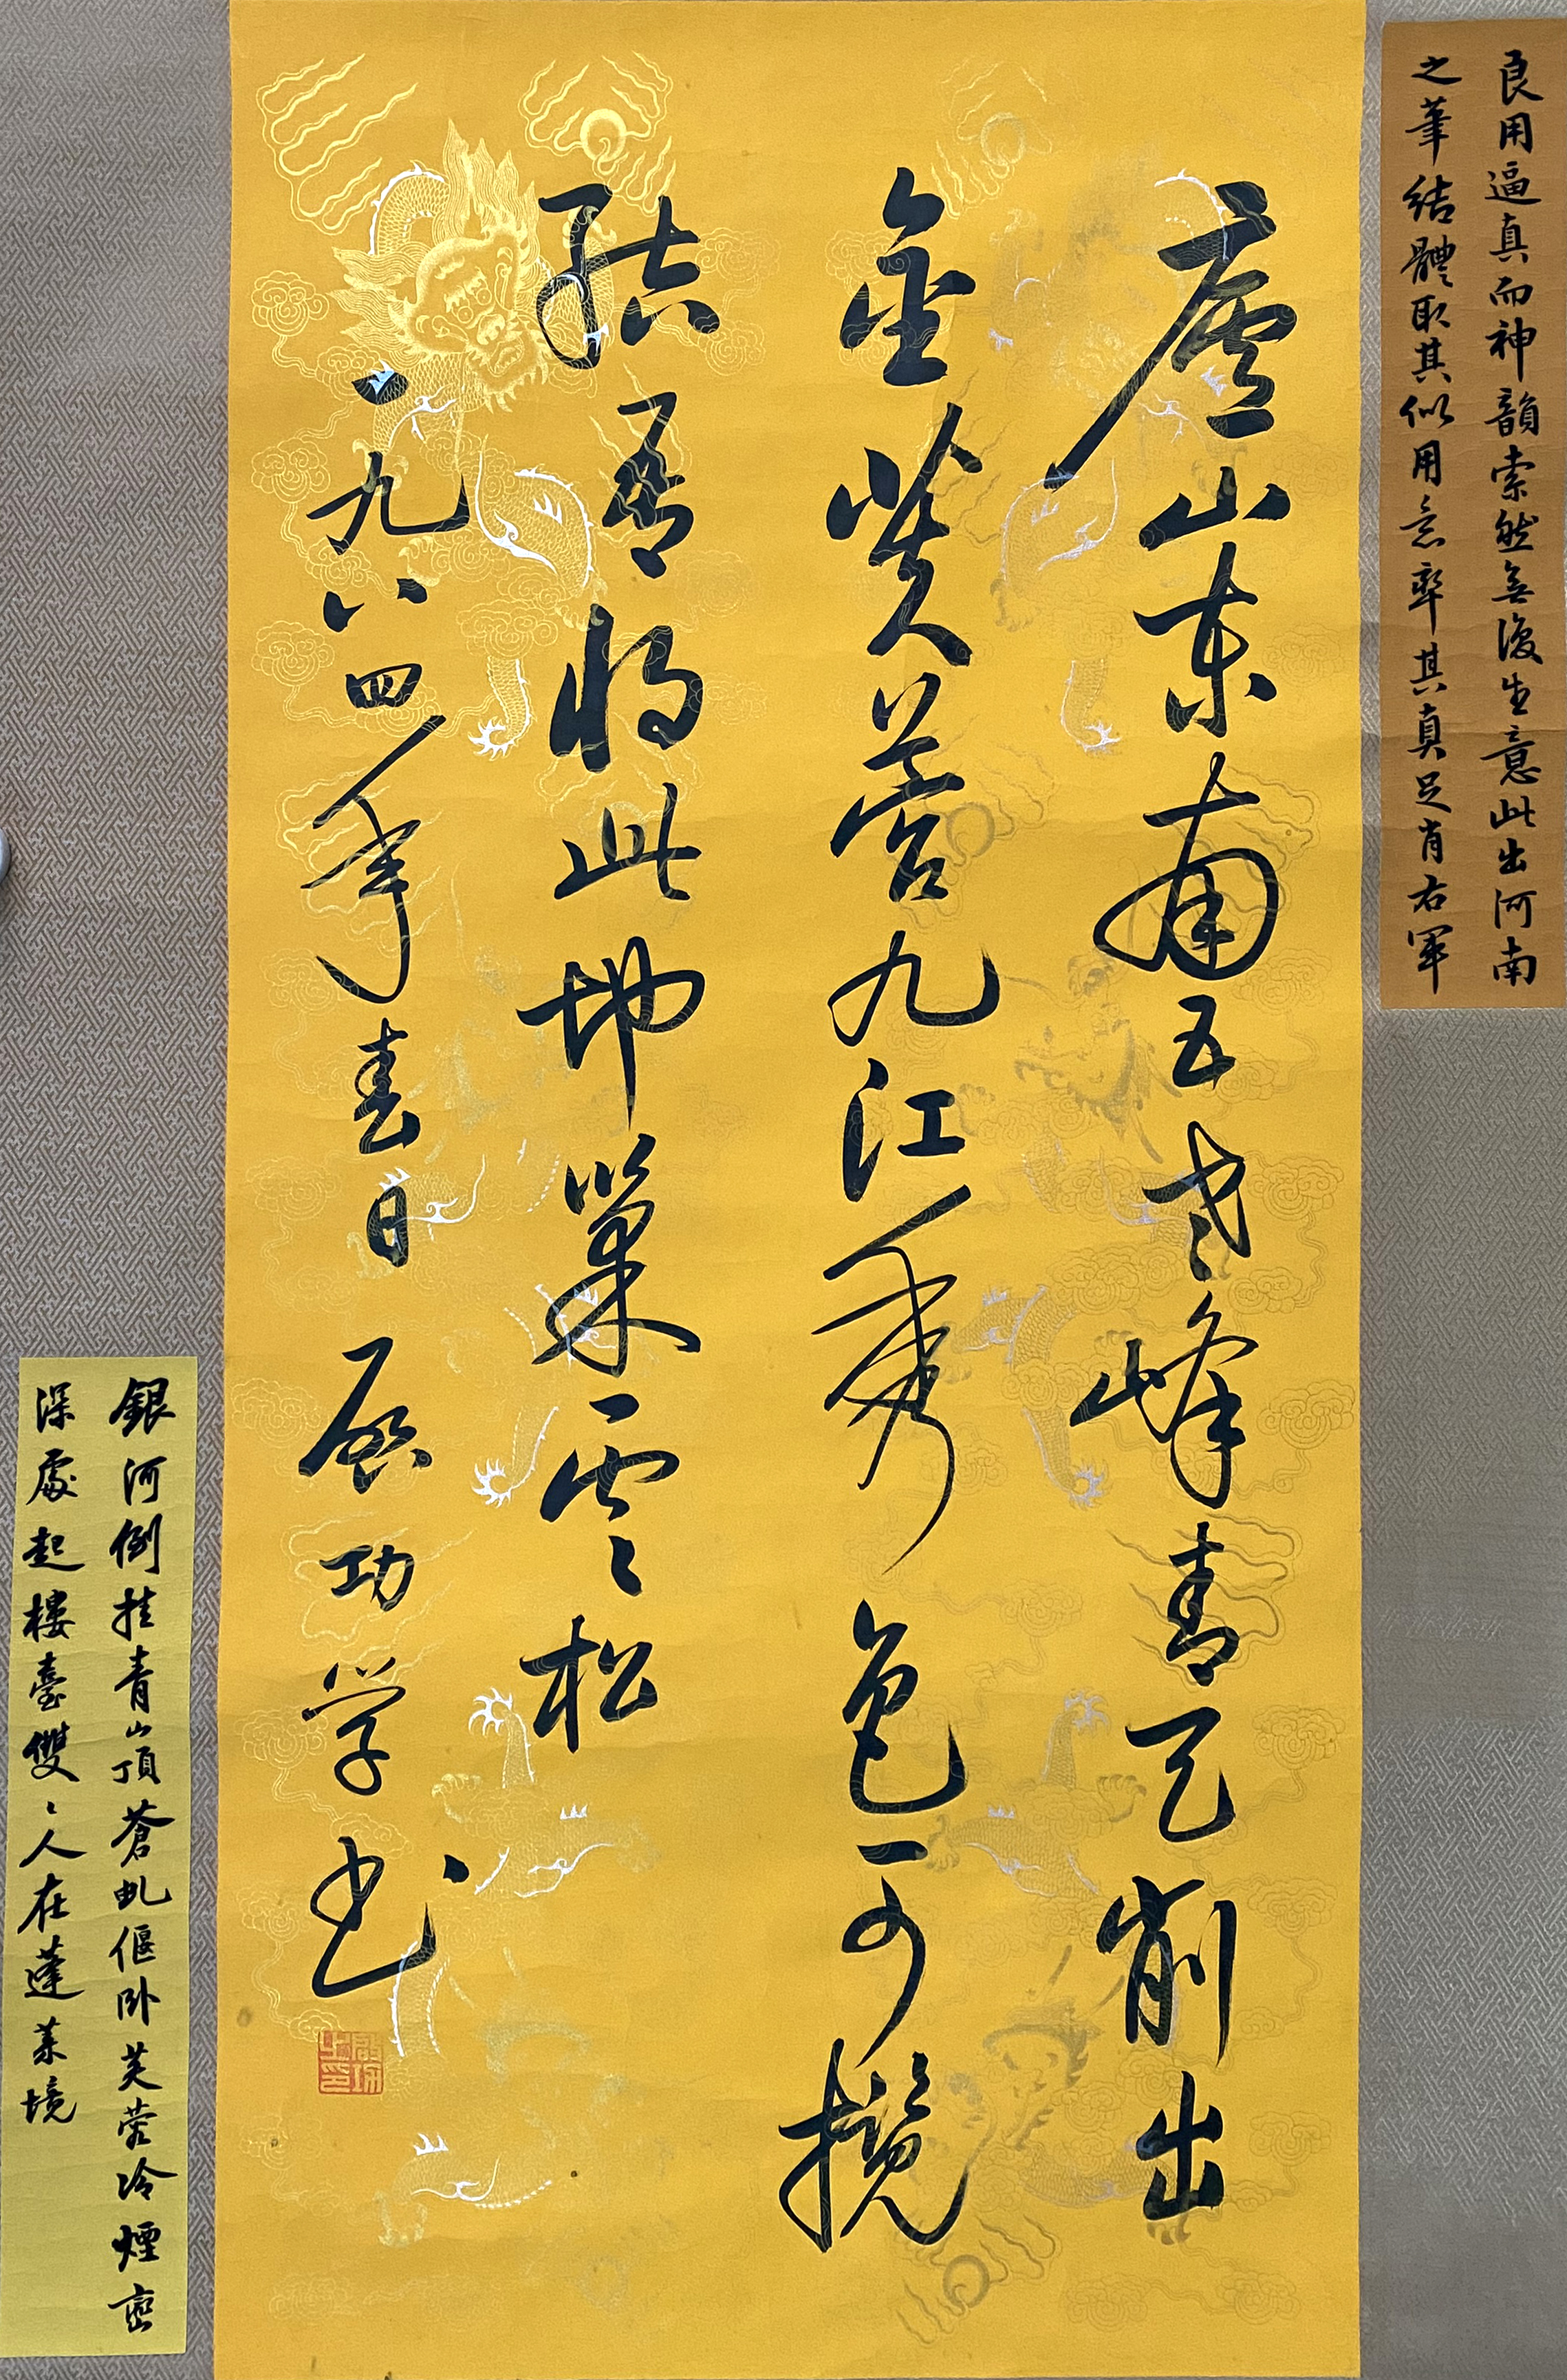 良用逼真而神韻索然無復生意此出河南
之筆結體取其似用意率其真足肖右軍
廬山东南五老峰青天削出
金芙蓉九江秀色可攬
结吾将此地巢雲松
一九八四年春日 启功学书
銀河倒挂青山頂蒼虬偃卧芙蓉冷煙巒
深處起樓臺雙々人在蓬萊境